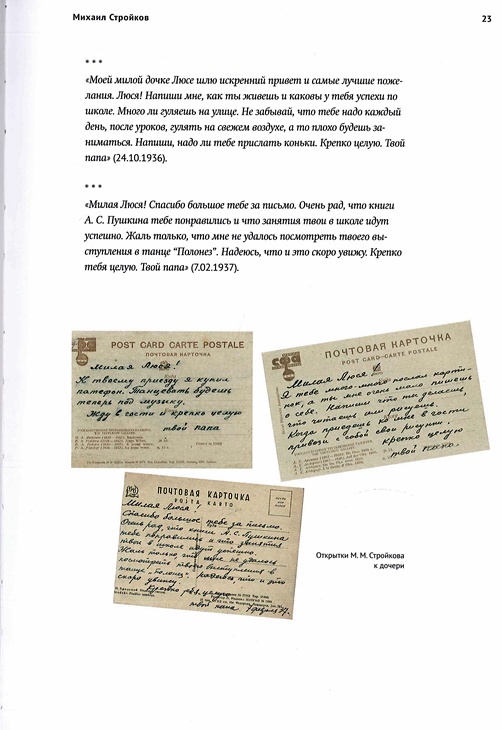 Михаил Стройков
23
* * *
«Моей милой дочке Люсе шлю искренний привет и самые лучшие поже-
лания. Люся! Напиши мне, как ты живешь и каковы у тебя успехи по
школе. Много ли гуляешь на улице. Не забывай, что тебе надо каждый
день, после уроков, гулять на свежем воздухе, а то плохо будешь за-
ниматься. Напиши, надо ли тебе прислать коньки. Крепко целую. Твой
папа» (24.10.1936).
* * *
«Милая Люся! Спасибо большое тебе за письмо. Очень рад, что книги
А. С. Пушкина тебе понравились и что занятия твои в школе идут
успешно. Жаль только, что мне не удалось посмотреть твоего вы-
ступления в танце “Полонез”. Надеюсь, что и это скоро увижу. Крепко
тебя целую. Твой папа» (7.02.1937).
POST CARD CARTE POSTALE
ПОЧТОВАЯ КАРТОЧКА
Милая Люся!
К твоему приезду я купил
патефон. Танцевать будешь
теперь под музыку.
Жду в гости и крепко целую
твой папа
ПОЧТОВАЯ КАРТОЧКА
POST CARD-CARTE POSTALE
Милая Люся
Я тебе много-много послал карти-
нок, а ты мне очень мало пишешь
о себе. Напиши что ты делаешь,
что читаешь или рисуешь.
Когда приедешь ко мне в гости
привези с собой свои рисунки.
крепко целую
твой папа.
ПОЧТОВАЯ КАРТОЧКА
POSTA KARTO
Милая Люся!
Спасибо большое тебе за письмо.
Очень рад, что книги А. С. Пушкина
тебе понравились и что занятия
твои в школе идут успешно.
Жаль только, что мне не удалось
посмотреть твоего выступления в
танце „Полонез". Надеюсь что и это
скоро увижу.
Крепко тебя целую
твой папа
Открытки М. М. Стройкова
к дочери